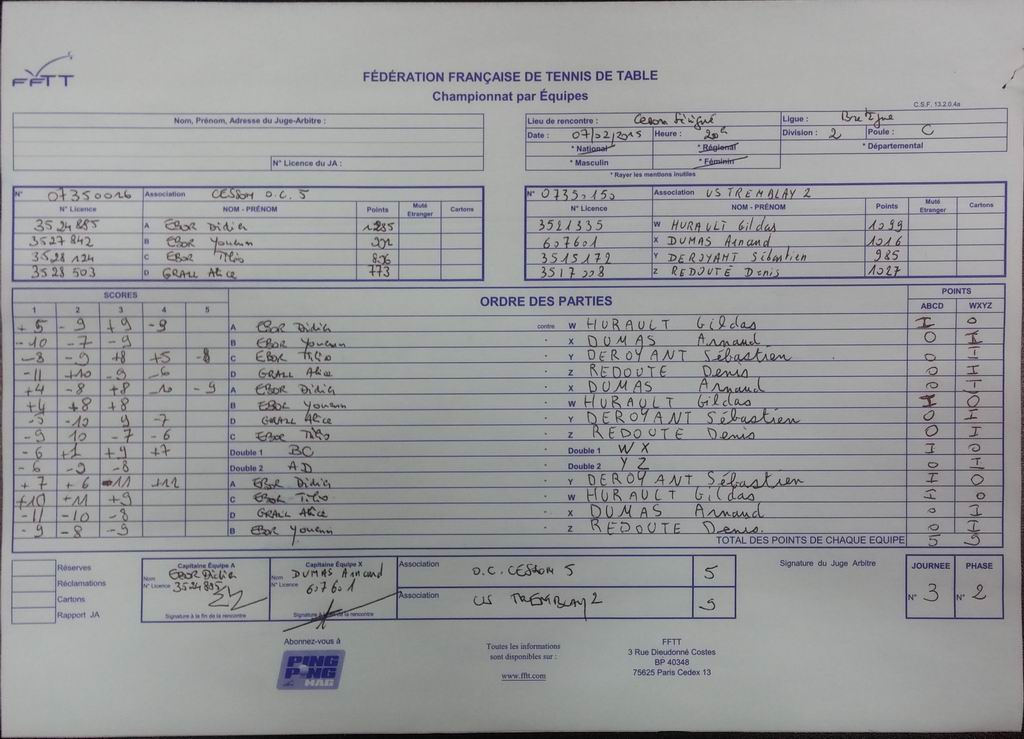 FFTT
FÉDÉRATION FRANÇAISE DE TENNIS DE TABLE
Championnat par Équipes
C.S.F. 13.2.0.4a
Nom, Prénom, Adresse du Juge-Arbitre :
N° Licence du JA :
Lieu de rencontre : Cesson Sévigné Ligue : Bretagne
Date : 07/02/2015 Heure : 20h Division : 2 Poule : C
* National * Régional * Départemental
* Masculin * Féminin
* Rayer les mentions inutiles
N° 07350026 Association CESSON O.C. 5
N° Licence NOM - PRÉNOM Points Muté Etranger Cartons
3524885 A EBOR Didier 1235
3527842 B EBOR Youenn
3528124 C EBOR Théo 826
3528503 D GRALL Alice 773
N° 07350150 Association US TREMBLAY 2
N° Licence NOM - PRÉNOM Points Muté Etranger Cartons
3521335 W HURAULT Gildas 1099
607601 X DUMAS Arnaud 1016
3515172 Y DEROYANT Sébastien 985
3517008 Z REDOUTÉ Denis 1027
SCORES ORDRE DES PARTIES POINTS
1 2 3 4 5 ABCD WXYZ
+5 -9 +9 -9 A EBOR Didier contre W HURAULT Gildas I 0
-10 -7 -9 B EBOR Youenn - X DUMAS Arnaud 0 I
-8 -9 +8 +5 -8 C EBOR Théo - Y DEROYANT Sébastien 0 I
-11 +10 -9 -6 D GRALL Alice - Z REDOUTE Denis 0 I
+4 -8 +8 -10 -9 A EBOR Didier - X DUMAS Arnaud 0 I
+4 +8 +8 B EBOR Youenn - W HURAULT Gildas I 0
-5 -10 9 -7 D GRALL Alice - Y DEROYANT Sébastien 0 I
-9 10 -7 -6 C EBOR Théo - Z REDOUTE Denis 0 I
-6 +1 +9 +7 Double 1 BC - Double 1 WX I 0
-6 -9 -8 Double 2 AD - Double 2 YZ 0 I
+7 +6 -11 +12 A EBOR Didier - Y DEROYANT Sébastien I 0
+10 +11 +9 C EBOR Théo - W HURAULT Gildas I 0
-11 -10 -8 D GRALL Alice - X DUMAS Arnaud 0 I
-9 -8 -9 B EBOR Youenn - Z REDOUTE Denis. 0 I
TOTAL DES POINTS DE CHAQUE EQUIPE 5 9
Réserves
Réclamations
Cartons
Rapport JA
Capitaine Équipe A
Nom EBOR Didier
N° Licence 3524885
Signature à la fin de la rencontre
Capitaine Équipe X
Nom DUMAS Arnaud
N° Licence 607601
Signature à la fin de la rencontre
Association O.C. CESSON 5 5
Association US TREMBLAY 2 9
Signature du Juge Arbitre
JOURNEE PHASE
N° 3 N° 2
Abonnez-vous à
PING PONG MAG
Toutes les informations
sont disponibles sur :
www.fftt.com
FFTT
3 Rue Dieudonné Costes
BP 40348
75625 Paris Cedex 13